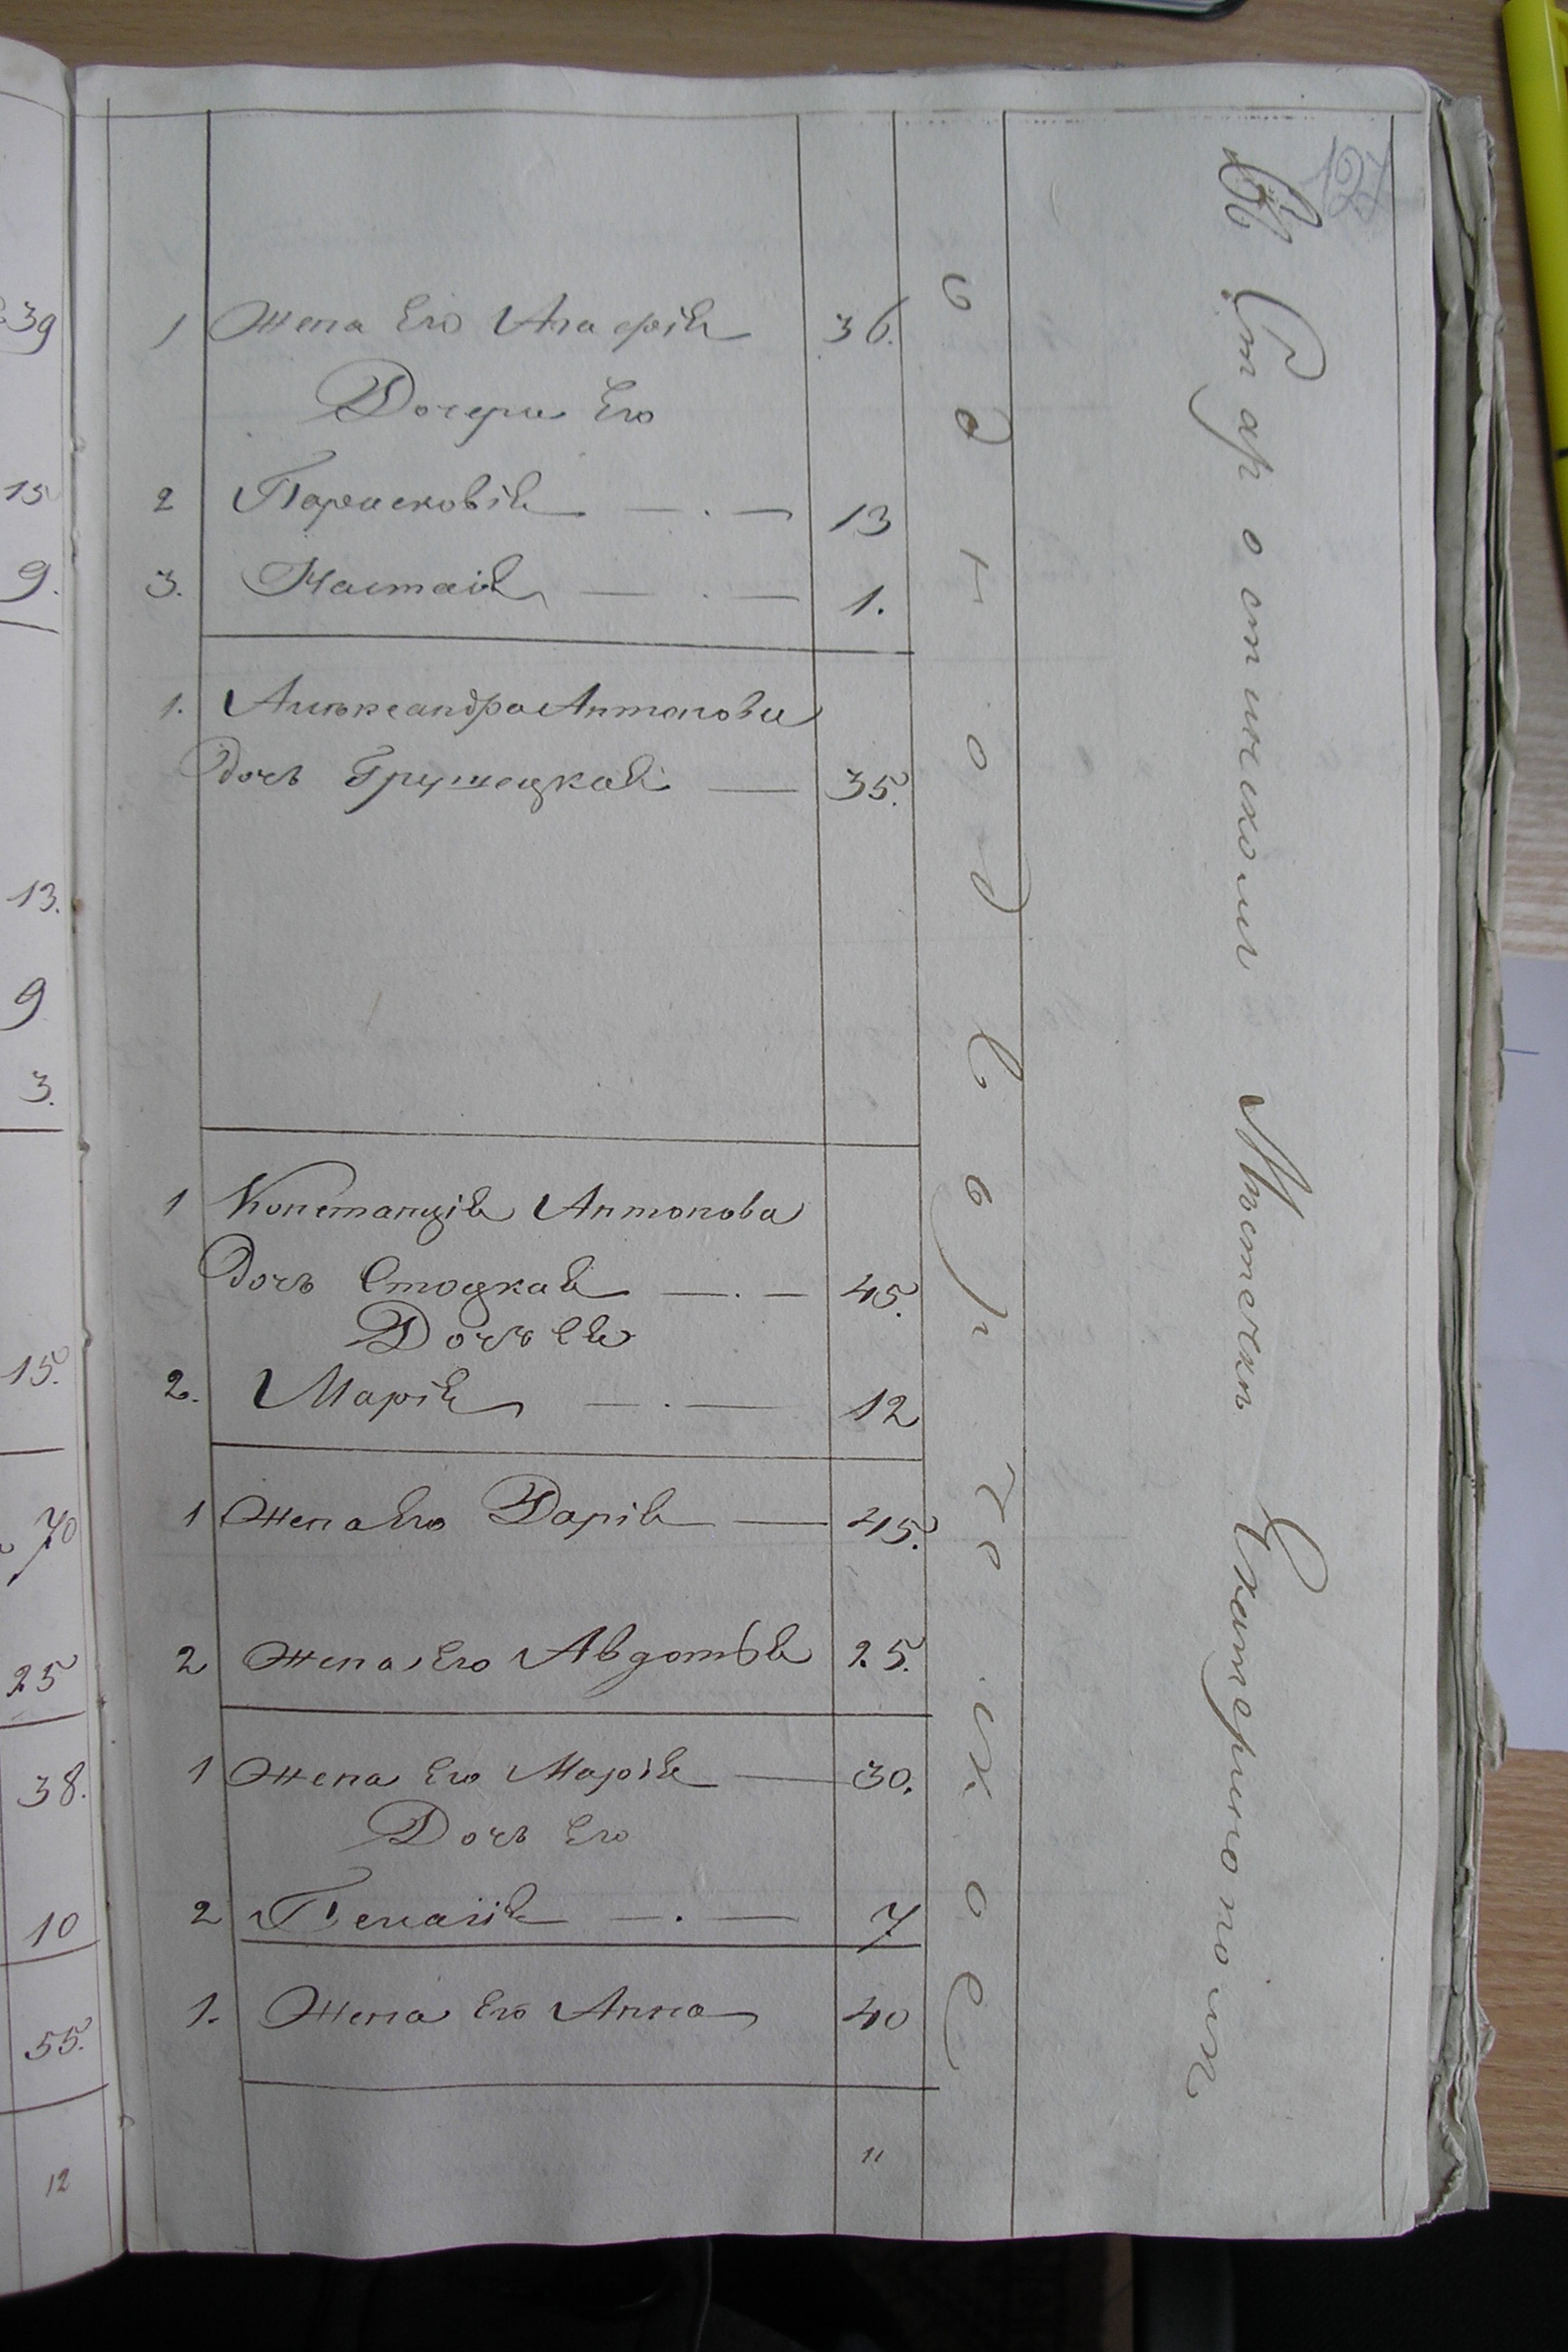 39
15
9.
13.
9
3.
15.
70
25
38.
10
55.
12
127
1 Жена Его Агафія 36.
Дочери Его
2 Парасковія — . — 13
3. Настаія — . — 1.
1. Алѣксандра Антонова
дочь Грушецкая — 35.
1 Констанція Антонова
дочь Стоцкая — . — 45.
Дочь Ея
2. Марія — . — 12
1 Жена Его Дарія — 45.
2 Жена Его Авдотья 25.
1 Жена Его Марія — 30.
Дочь Его
2 Пелагія — . — 7
1. Жена Его Анна 40
"
Въ Старостинскомъ Мѣстечкѣ